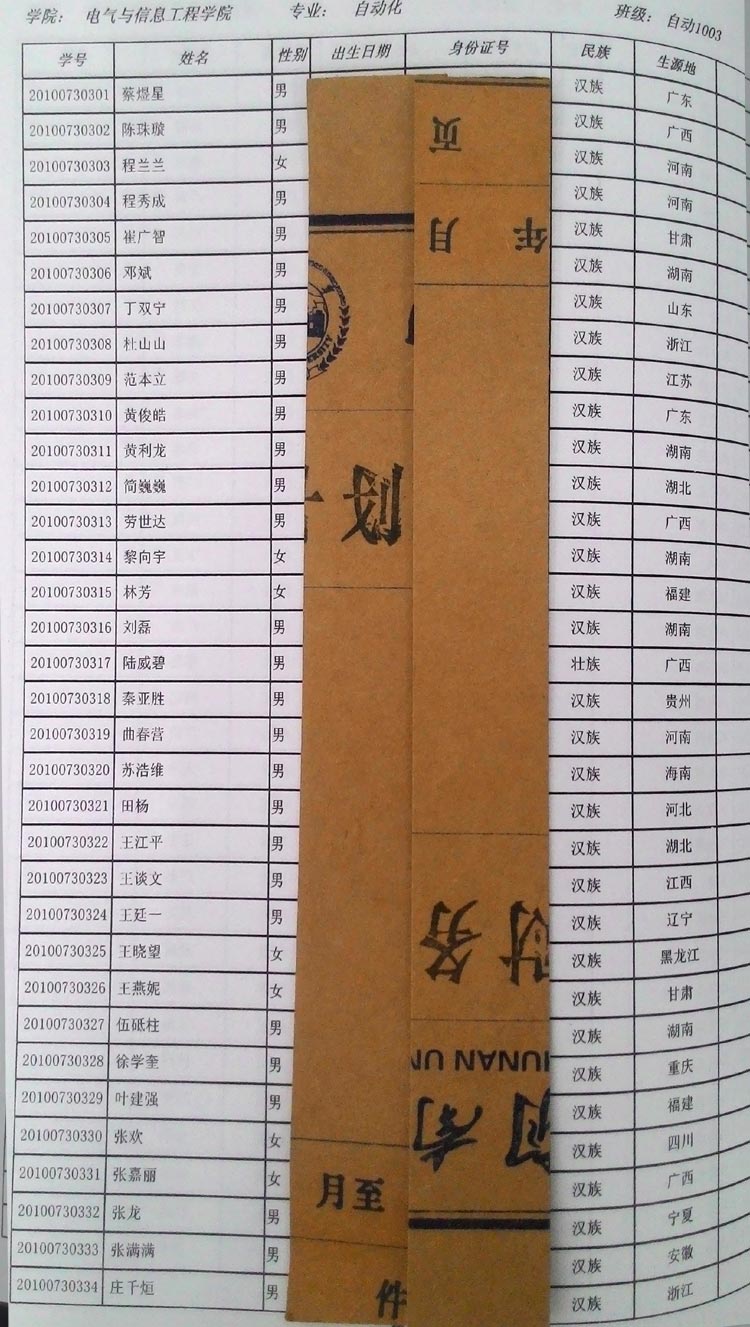 学院： 电气与信息工程学院 专业： 自动化 班级： 自动1003
学号 姓名 性别 出生日期 身份证号 民族 生源地
20100730301 蔡煜星 男 汉族 广东
20100730302 陈珠璇 男 汉族 广西
20100730303 程兰兰 女 汉族 河南
20100730304 程秀成 男 汉族 河南
20100730305 崔广智 男 汉族 甘肃
20100730306 邓斌 男 汉族 湖南
20100730307 丁双宁 男 汉族 山东
20100730308 杜山山 男 汉族 浙江
20100730309 范本立 男 汉族 江苏
20100730310 黄俊皓 男 汉族 广东
20100730311 黄利龙 男 汉族 湖南
20100730312 简巍巍 男 汉族 湖北
20100730313 劳世达 男 汉族 广西
20100730314 黎向宇 女 汉族 湖南
20100730315 林芳 女 汉族 福建
20100730316 刘磊 男 汉族 湖南
20100730317 陆威碧 男 壮族 广西
20100730318 秦亚胜 男 汉族 贵州
20100730319 曲春营 男 汉族 河南
20100730320 苏浩维 男 汉族 海南
20100730321 田杨 男 汉族 河北
20100730322 王江平 男 汉族 湖北
20100730323 王谈文 男 汉族 江西
20100730324 王廷一 男 汉族 辽宁
20100730325 王晓望 女 汉族 黑龙江
20100730326 王燕妮 女 汉族 甘肃
20100730327 伍砥柱 男 汉族 湖南
20100730328 徐学奎 男 汉族 重庆
20100730329 叶建强 男 汉族 福建
20100730330 张欢 女 汉族 四川
20100730331 张嘉丽 女 汉族 广西
20100730332 张龙 男 汉族 宁夏
20100730333 张满满 男 汉族 安徽
20100730334 庄千烜 男 汉族 浙江
页
年 月
财务
HUNAN UN
湖南
月至
件